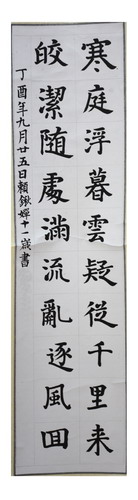 寒庭浮暮雲疑從千里来
皎潔随處滿流亂逐風回
丁酉年九月廿五日賴鍬嬋十一歲書